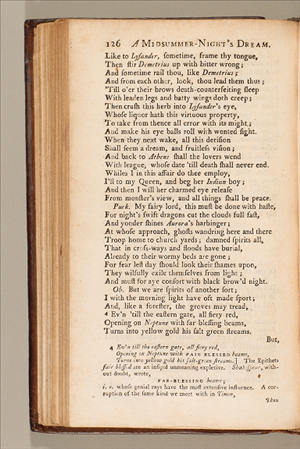 126 A MIDSUMMER-NIGHT'S DREAM.
Like to Lyſander, ſometime, frame thy tongue,
Then ſtir Demetrius up with bitter wrong;
And ſometime rail thou, like Demetrius;
And from each other, look, thou lead them thus;
'Till o'er their brows death-counterfeiting ſleep
With leaden legs and batty wings doth creep;
Then cruſh this herb into Lyſander's eye,
Whoſe liquor hath this virtuous property,
To take from thence all error with its might;
And make his eye balls roll with wonted ſight.
When they next wake, all this deriſion
Shall ſeem a dream, and fruitleſs viſion;
And back to Athens ſhall the lovers wend
With league, whoſe date 'till death ſhall never end.
Whiles I in this affair do thee employ,
I'll to my Queen, and beg her Indian boy;
And then I will her charmed eye releaſe
From monſter's view, and all things ſhall be peace.
Puck. My fairy lord, this muſt be done with haſte,
For night's ſwift dragons cut the clouds full faſt,
And yonder ſhines Aurora's harbinger;
At whoſe approach, ghoſts wandring here and there
Troop home to church yards; damned ſpirits all,
That in croſs-ways and floods have burial,
Already to their wormy beds are gone;
For fear leſt day ſhould look their ſhames upon,
They wilfully exile themſelves from light;
And muſt for aye conſort with black brow'd night.
Ob. But we are ſpirits of another ſort;
I with the morning light have oft made ſport;
And, like a foreſter, the groves may tread,
4 Ev'n 'till the eaſtern gate, all fiery red,
Opening on Neptune with far-bleſſing beams,
Turns into yellow gold his ſalt green ſtreams.
But,
4 Ev'n till the eaſtern gate, all fiery red,
Opening on Neptune with FAIR BLESSED beams,
Turns into yellow gold his ſalt-green ſtreams.] The Epithets
fair bleſſed are an inſipid unmeaning expletive. Shakeſpear, with-
out doubt, wrote,
FAR-BLESSING beams;
i. e. whoſe genial rays have the moſt extenſive influence. A cor-
ruption of the ſame kind we meet with in Timon,